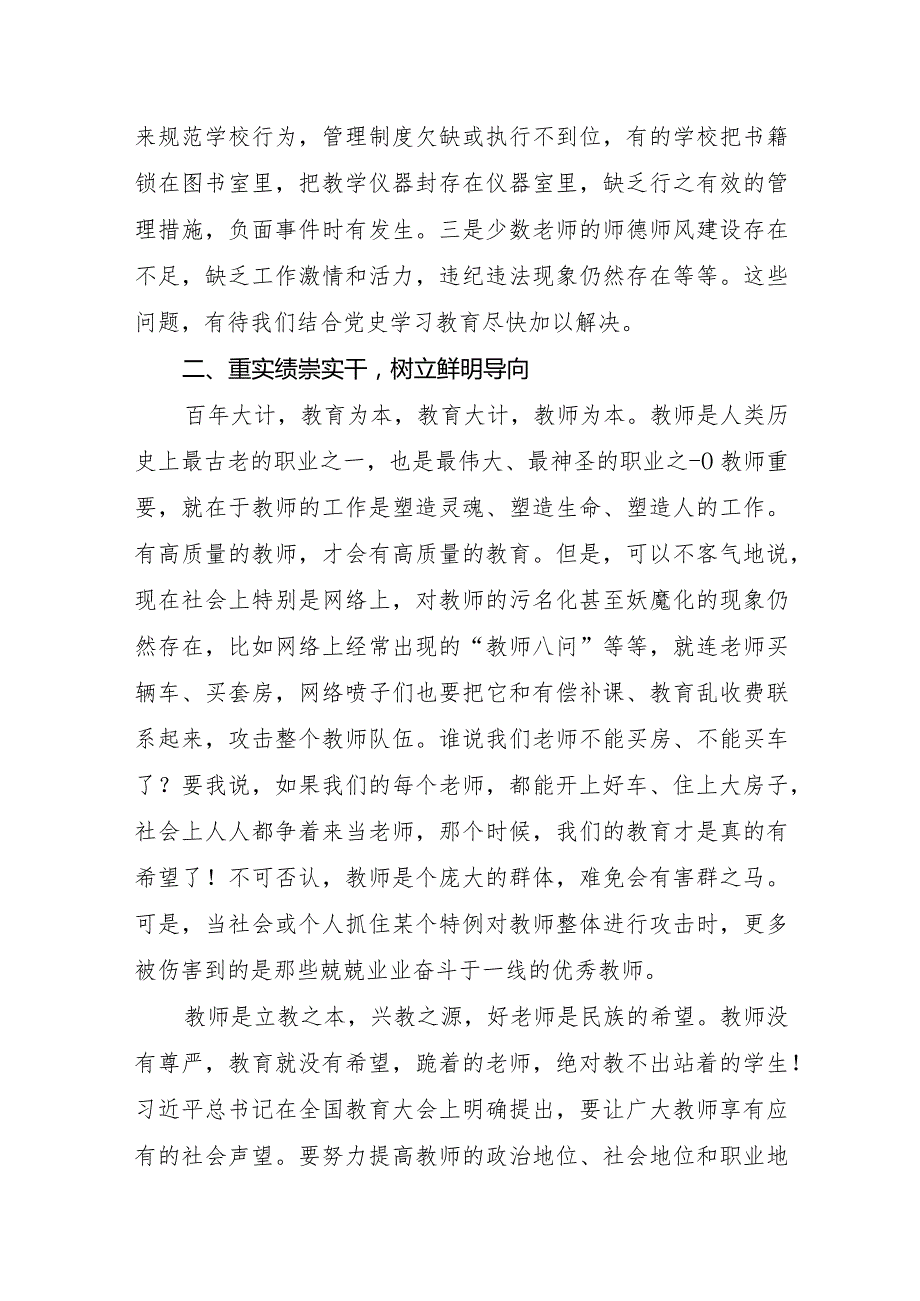 来规范学校行为，管理制度欠缺或执行不到位，有的学校把书籍
锁在图书室里，把教学仪器封存在仪器室里，缺乏行之有效的管
理措施，负面事件时有发生。三是少数老师的师德师风建设存在
不足，缺乏工作激情和活力，违纪违法现象仍然存在等等。这些
问题，有待我们结合党史学习教育尽快加以解决。
二、重实绩崇实干，树立鲜明导向
百年大计，教育为本，教育大计，教师为本。教师是人类历
史上最古老的职业之一，也是最伟大、最神圣的职业之-0 教师重
要，就在于教师的工作是塑造灵魂、塑造生命、塑造人的工作。
有高质量的教师，才会有高质量的教育。但是，可以不客气地说，
现在社会上特别是网络上，对教师的污名化甚至妖魔化的现象仍
然存在，比如网络上经常出现的“教师八问”等等，就连老师买
辆车、买套房，网络喷子们也要把它和有偿补课、教育乱收费联
系起来，攻击整个教师队伍。谁说我们老师不能买房、不能买车
了？要我说，如果我们的每个老师，都能开上好车、住上大房子，
社会上人人都争着来当老师，那个时候，我们的教育才是真的有
希望了！不可否认，教师是个庞大的群体，难免会有害群之马。
可是，当社会或个人抓住某个特例对教师整体进行攻击时，更多
被伤害到的是那些兢兢业业奋斗于一线的优秀教师。
教师是立教之本，兴教之源，好老师是民族的希望。教师没
有尊严，教育就没有希望，跪着的老师，绝对教不出站着的学生！
习近平总书记在全国教育大会上明确提出，要让广大教师享有应
有的社会声望。要努力提高教师的政治地位、社会地位和职业地